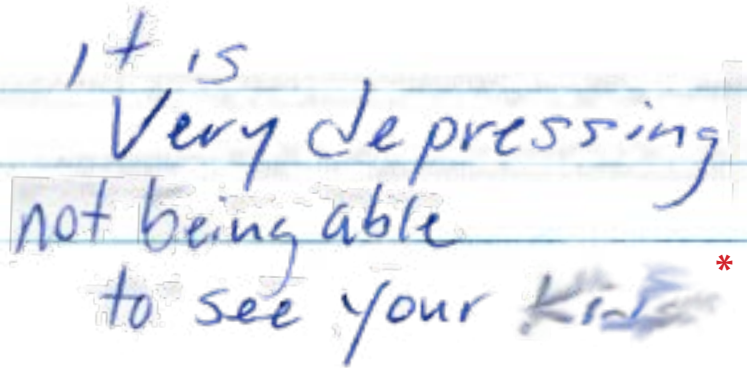 it is
Very depressing
not being able
to see your Kids *